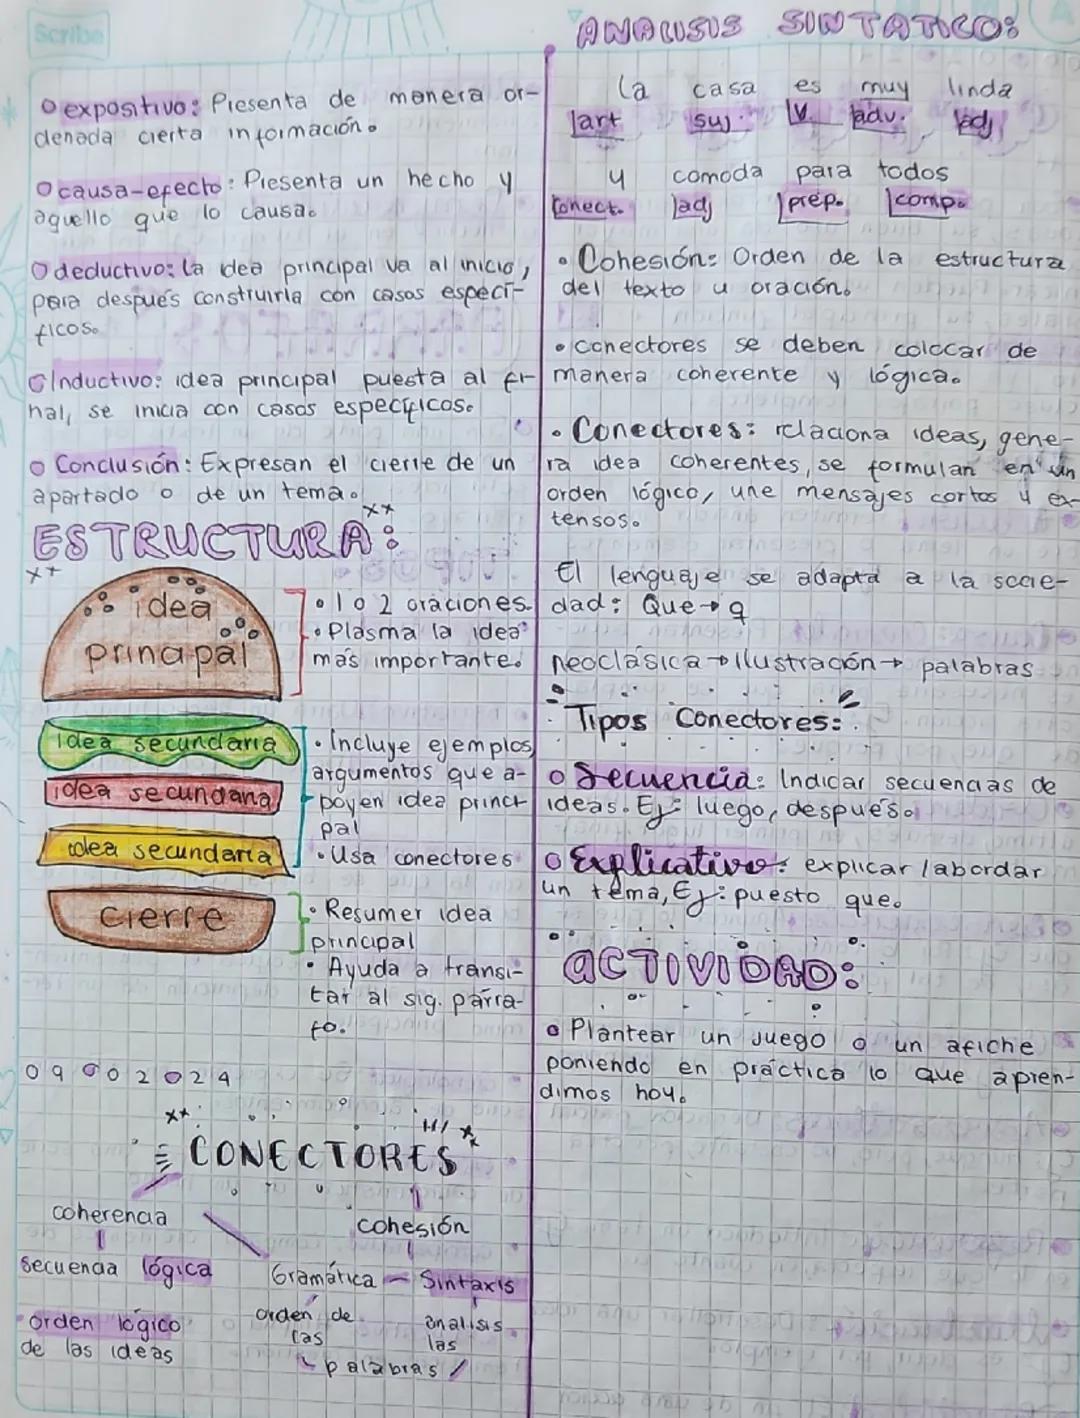 Scribe
O expositivo: Presenta de manera or-
denada cierta información.
O causa-efecto: Presenta un hecho y
aquello que lo causa.
O deductivo: la idea principal va al inicio,
para después construirla con casos especí-
ficos.
O Inductivo: idea principal puesta al fi-
nal, se inicia con casos específicos.
O Conclusión: Expresan el cierre de un
apartado o de un tema.
ESTRUCTURA:
idea
principal
• 1 o 2 oraciones.
• Plasma la idea
más importante.
idea secundaria
idea secundaria
idea secundaria
• Incluye ejemplos,
argumentos que a-
poyen idea princi
pal
• Usa conectores
cierre
• Resumer idea
principal
• Ayuda a transi-
tar al sig. párra-
fo.
09 • 02 • 24
CONECTORES
coherencia
cohesión
secuencia lógica
Gramática — Sintaxis
orden lógico
de las ideas
orden de
las
analisis
las
palabras
ANALISIS SINTATICO:
La casa es muy linda
art suj. V. adv. adj
y comoda para todos
conect. adj prep. comp.
• Cohesión: Orden de la estructura
del texto u oración.
• conectores se deben colocar de
manera coherente y lógica.
• Conectores: relaciona ideas, gene-
ra idea coherentes, se formulan en un
orden lógico, une mensajes cortos y ex-
tensos.
El lenguaje se adapta a la socie-
dad: Que→q
neoclásica→Ilustración→ palabras
Tipos Conectores:
O Secuencia: Indicar secuencias de
ideas. Ej: luego, después.
O Explicativo: explicar/abordar
un tema, Ej: puesto que.
ACTIVIDAD:
O Plantear un juego o un afiche
poniendo en práctica lo que apren-
dimos hoy.